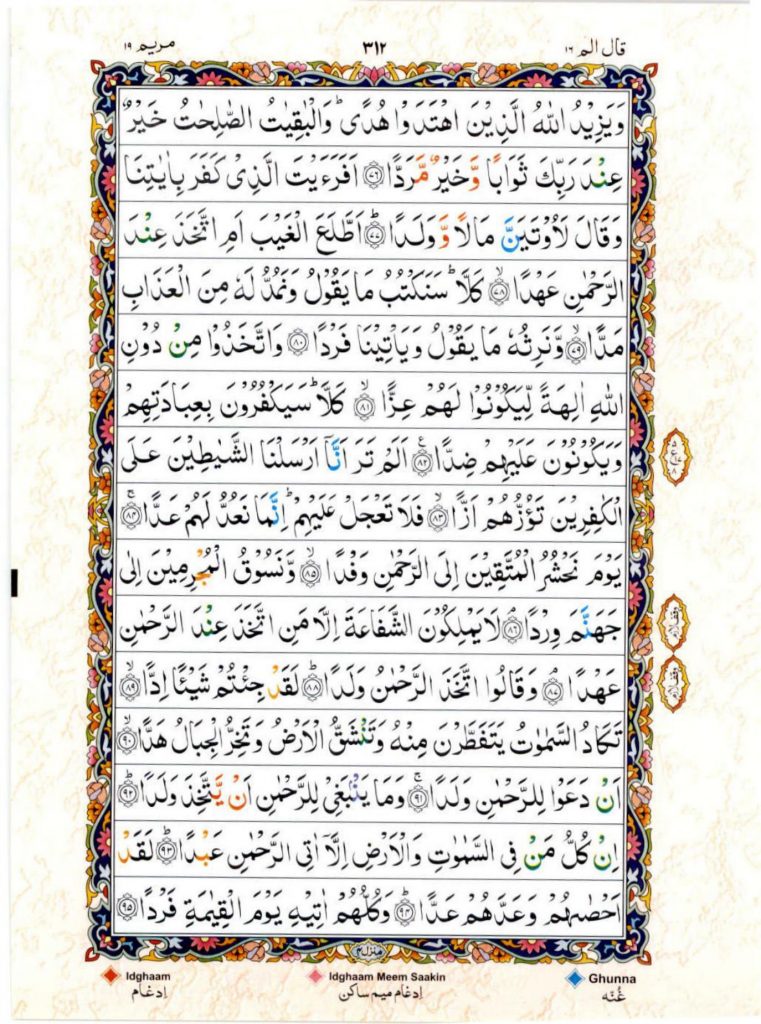 قال الم ١٦ ٣١٢ مريم ١٩
وَيَزِيْدُ اللّٰهُ الَّذِيْنَ اهْتَدَوْا هُدًى ؕ وَالْبٰقِيٰتُ الصّٰلِحٰتُ خَيْرٌ
عِنْدَ رَبِّكَ ثَوَابًا وَّخَيْرٌ مَّرَدًّا ﴿٧٦﴾ اَفَرَءَيْتَ الَّذِيْ كَفَرَ بِاٰيٰتِنَا
وَقَالَ لَاُوْتَيَنَّ مَالًا وَّوَلَدًا ؕ ﴿٧٧﴾ اَطَّلَعَ الْغَيْبَ اَمِ اتَّخَذَ عِنْدَ
الرَّحْمٰنِ عَهْدًا ۙ ﴿٧٨﴾ كَلَّا ؕ سَنَكْتُبُ مَا يَقُوْلُ وَنَمُدُّ لَهٗ مِنَ الْعَذَابِ
مَدًّا ۙ ﴿٧٩﴾ وَّنَرِثُهٗ مَا يَقُوْلُ وَيَاْتِيْنَا فَرْدًا ﴿٨٠﴾ وَاتَّخَذُوْا مِنْ دُوْنِ
اللّٰهِ اٰلِهَةً لِّيَكُوْنُوْا لَهُمْ عِزًّا ۙ ﴿٨١﴾ كَلَّا ؕ سَيَكْفُرُوْنَ بِعِبَادَتِهِمْ
وَيَكُوْنُوْنَ عَلَيْهِمْ ضِدًّا ﴿٨٢﴾ ع اَلَمْ تَرَ اَنَّاۤ اَرْسَلْنَا الشَّيٰطِيْنَ عَلَى
الْكٰفِرِيْنَ تَؤُزُّهُمْ اَزًّا ۙ ﴿٨٣﴾ فَلَا تَعْجَلْ عَلَيْهِمْ ؕ اِنَّمَا نَعُدُّ لَهُمْ عَدًّا ۚ ﴿٨٤﴾
يَوْمَ نَحْشُرُ الْمُتَّقِيْنَ اِلَى الرَّحْمٰنِ وَفْدًا ۙ ﴿٨٥﴾ وَّنَسُوْقُ الْمُجْرِمِيْنَ اِلٰى
جَهَنَّمَ وِرْدًا ۘ ﴿٨٦﴾ لَا يَمْلِكُوْنَ الشَّفَاعَةَ اِلَّا مَنِ اتَّخَذَ عِنْدَ الرَّحْمٰنِ
عَهْدًا ۘ ﴿٨٧﴾ وَقَالُوا اتَّخَذَ الرَّحْمٰنُ وَلَدًا ؕ ﴿٨٨﴾ لَقَدْ جِئْتُمْ شَيْئًا اِدًّا ۙ ﴿٨٩﴾
تَكَادُ السَّمٰوٰتُ يَتَفَطَّرْنَ مِنْهُ وَتَنْشَقُّ الْاَرْضُ وَتَخِرُّ الْجِبَالُ هَدًّا ۙ ﴿٩٠﴾
اَنْ دَعَوْا لِلرَّحْمٰنِ وَلَدًا ۚ ﴿٩١﴾ وَمَا يَنْۢبَغِيْ لِلرَّحْمٰنِ اَنْ يَّتَّخِذَ وَلَدًا ؕ ﴿٩٢﴾
اِنْ كُلُّ مَنْ فِى السَّمٰوٰتِ وَالْاَرْضِ اِلَّاۤ اٰتِى الرَّحْمٰنِ عَبْدًا ؕ ﴿٩٣﴾ لَقَدْ
اَحْصٰىهُمْ وَعَدَّهُمْ عَدًّا ؕ ﴿٩٤﴾ وَكُلُّهُمْ اٰتِيْهِ يَوْمَ الْقِيٰمَةِ فَرْدًا ﴿٩٥﴾
وقف لازم
وقف لازم
منزل ٤
Idghaam Idghaam Meem Saakin Ghunna
اِدغَام اِدغَام ميم ساكن غُنّه